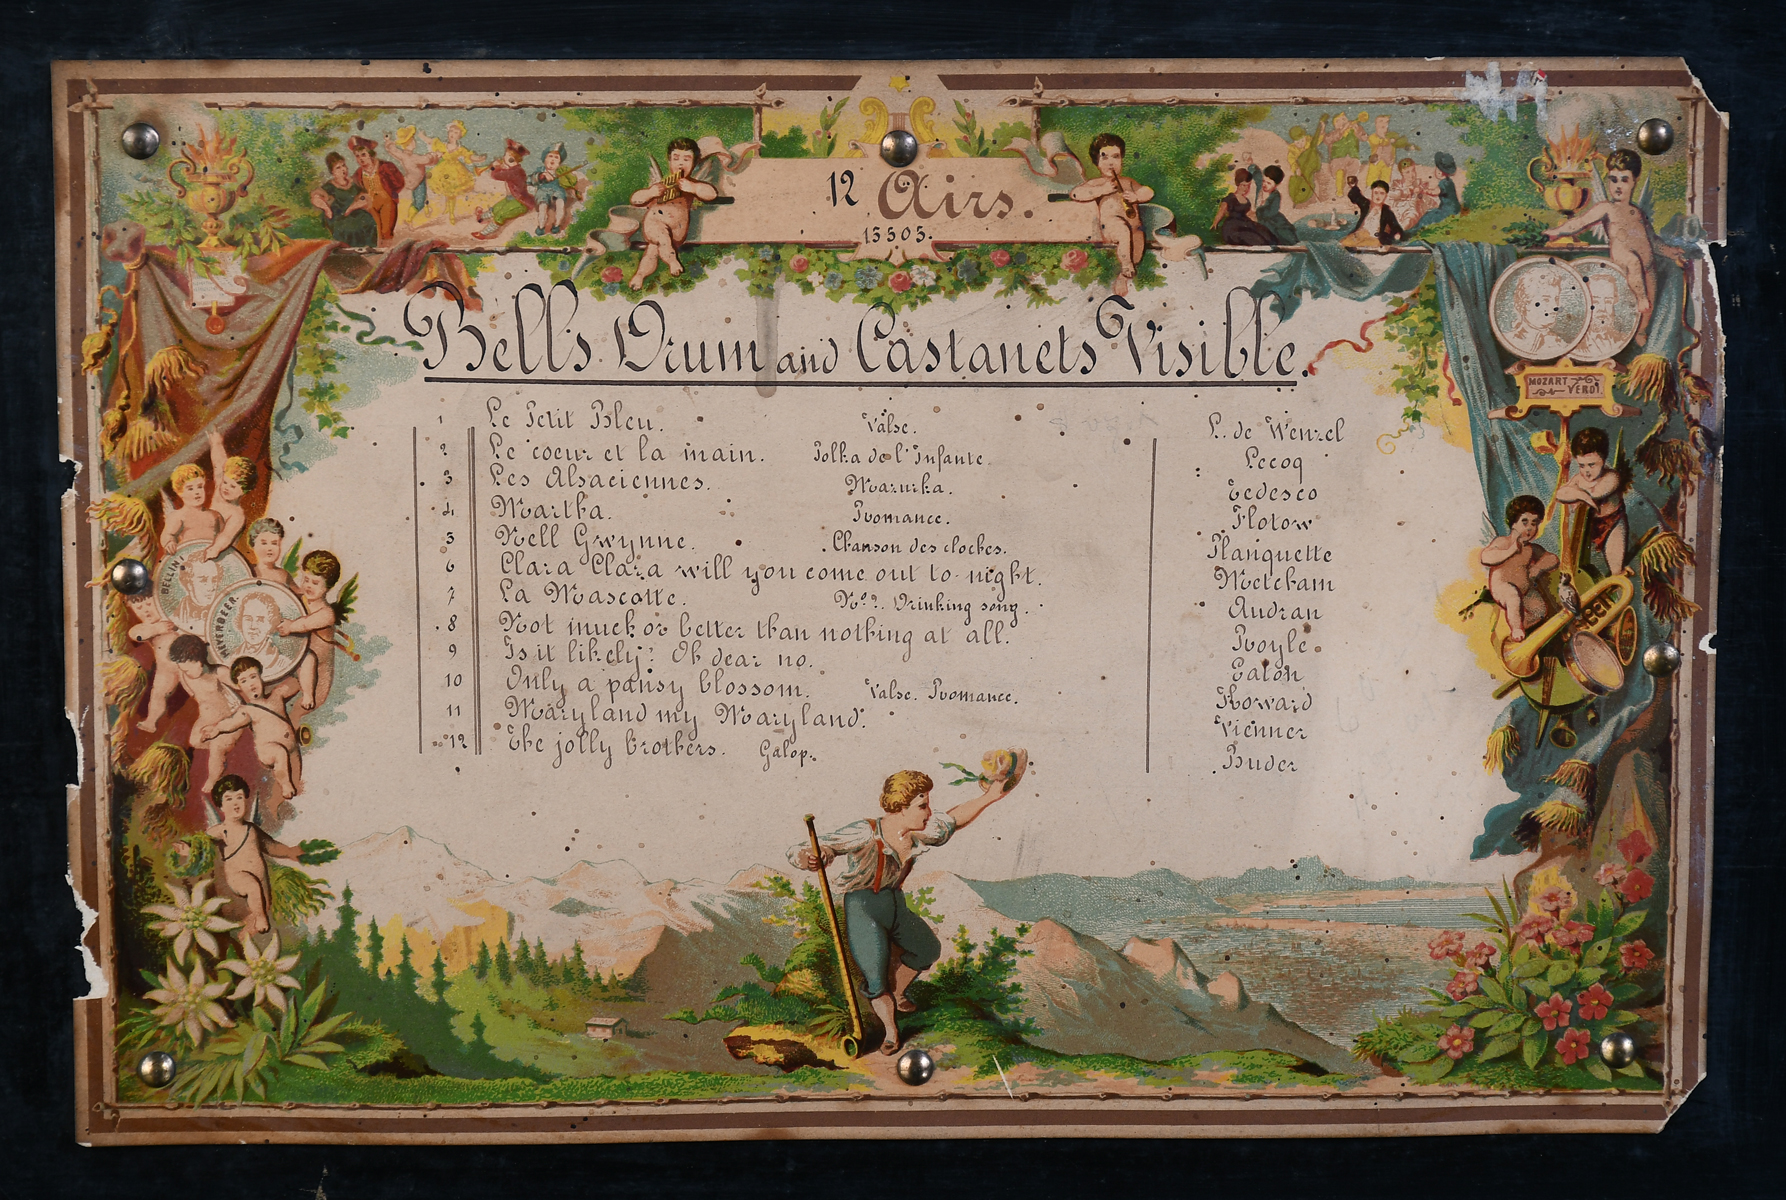 12 Airs.
13505.
Bells Drum and Castanets Visible.
MOZART VERDI
BELLINI
MEYERBEER
1 Le Petit Bleu. Valse. L. de Wenzel
2 Le coeur et la main. Polka de l'Infante. Lecoq
3 Les Alsaciennes. Mazurka. Tedesco
4 Martha. Romance. Flotow
5 Nell Gwynne. Chanson des cloches. Planquette
6 Clara Clara will you come out to-night. Metcham
7 La Mascotte. No 2. Drinking song. Audran
8 Not much or better than nothing at all. Royle
9 Is it likely? Oh dear no. Eaton
10 Only a pansy blossom. Valse. Romance. Howard
11 Maryland my Maryland. Vienner
12 The jolly brothers. Galop. Buder